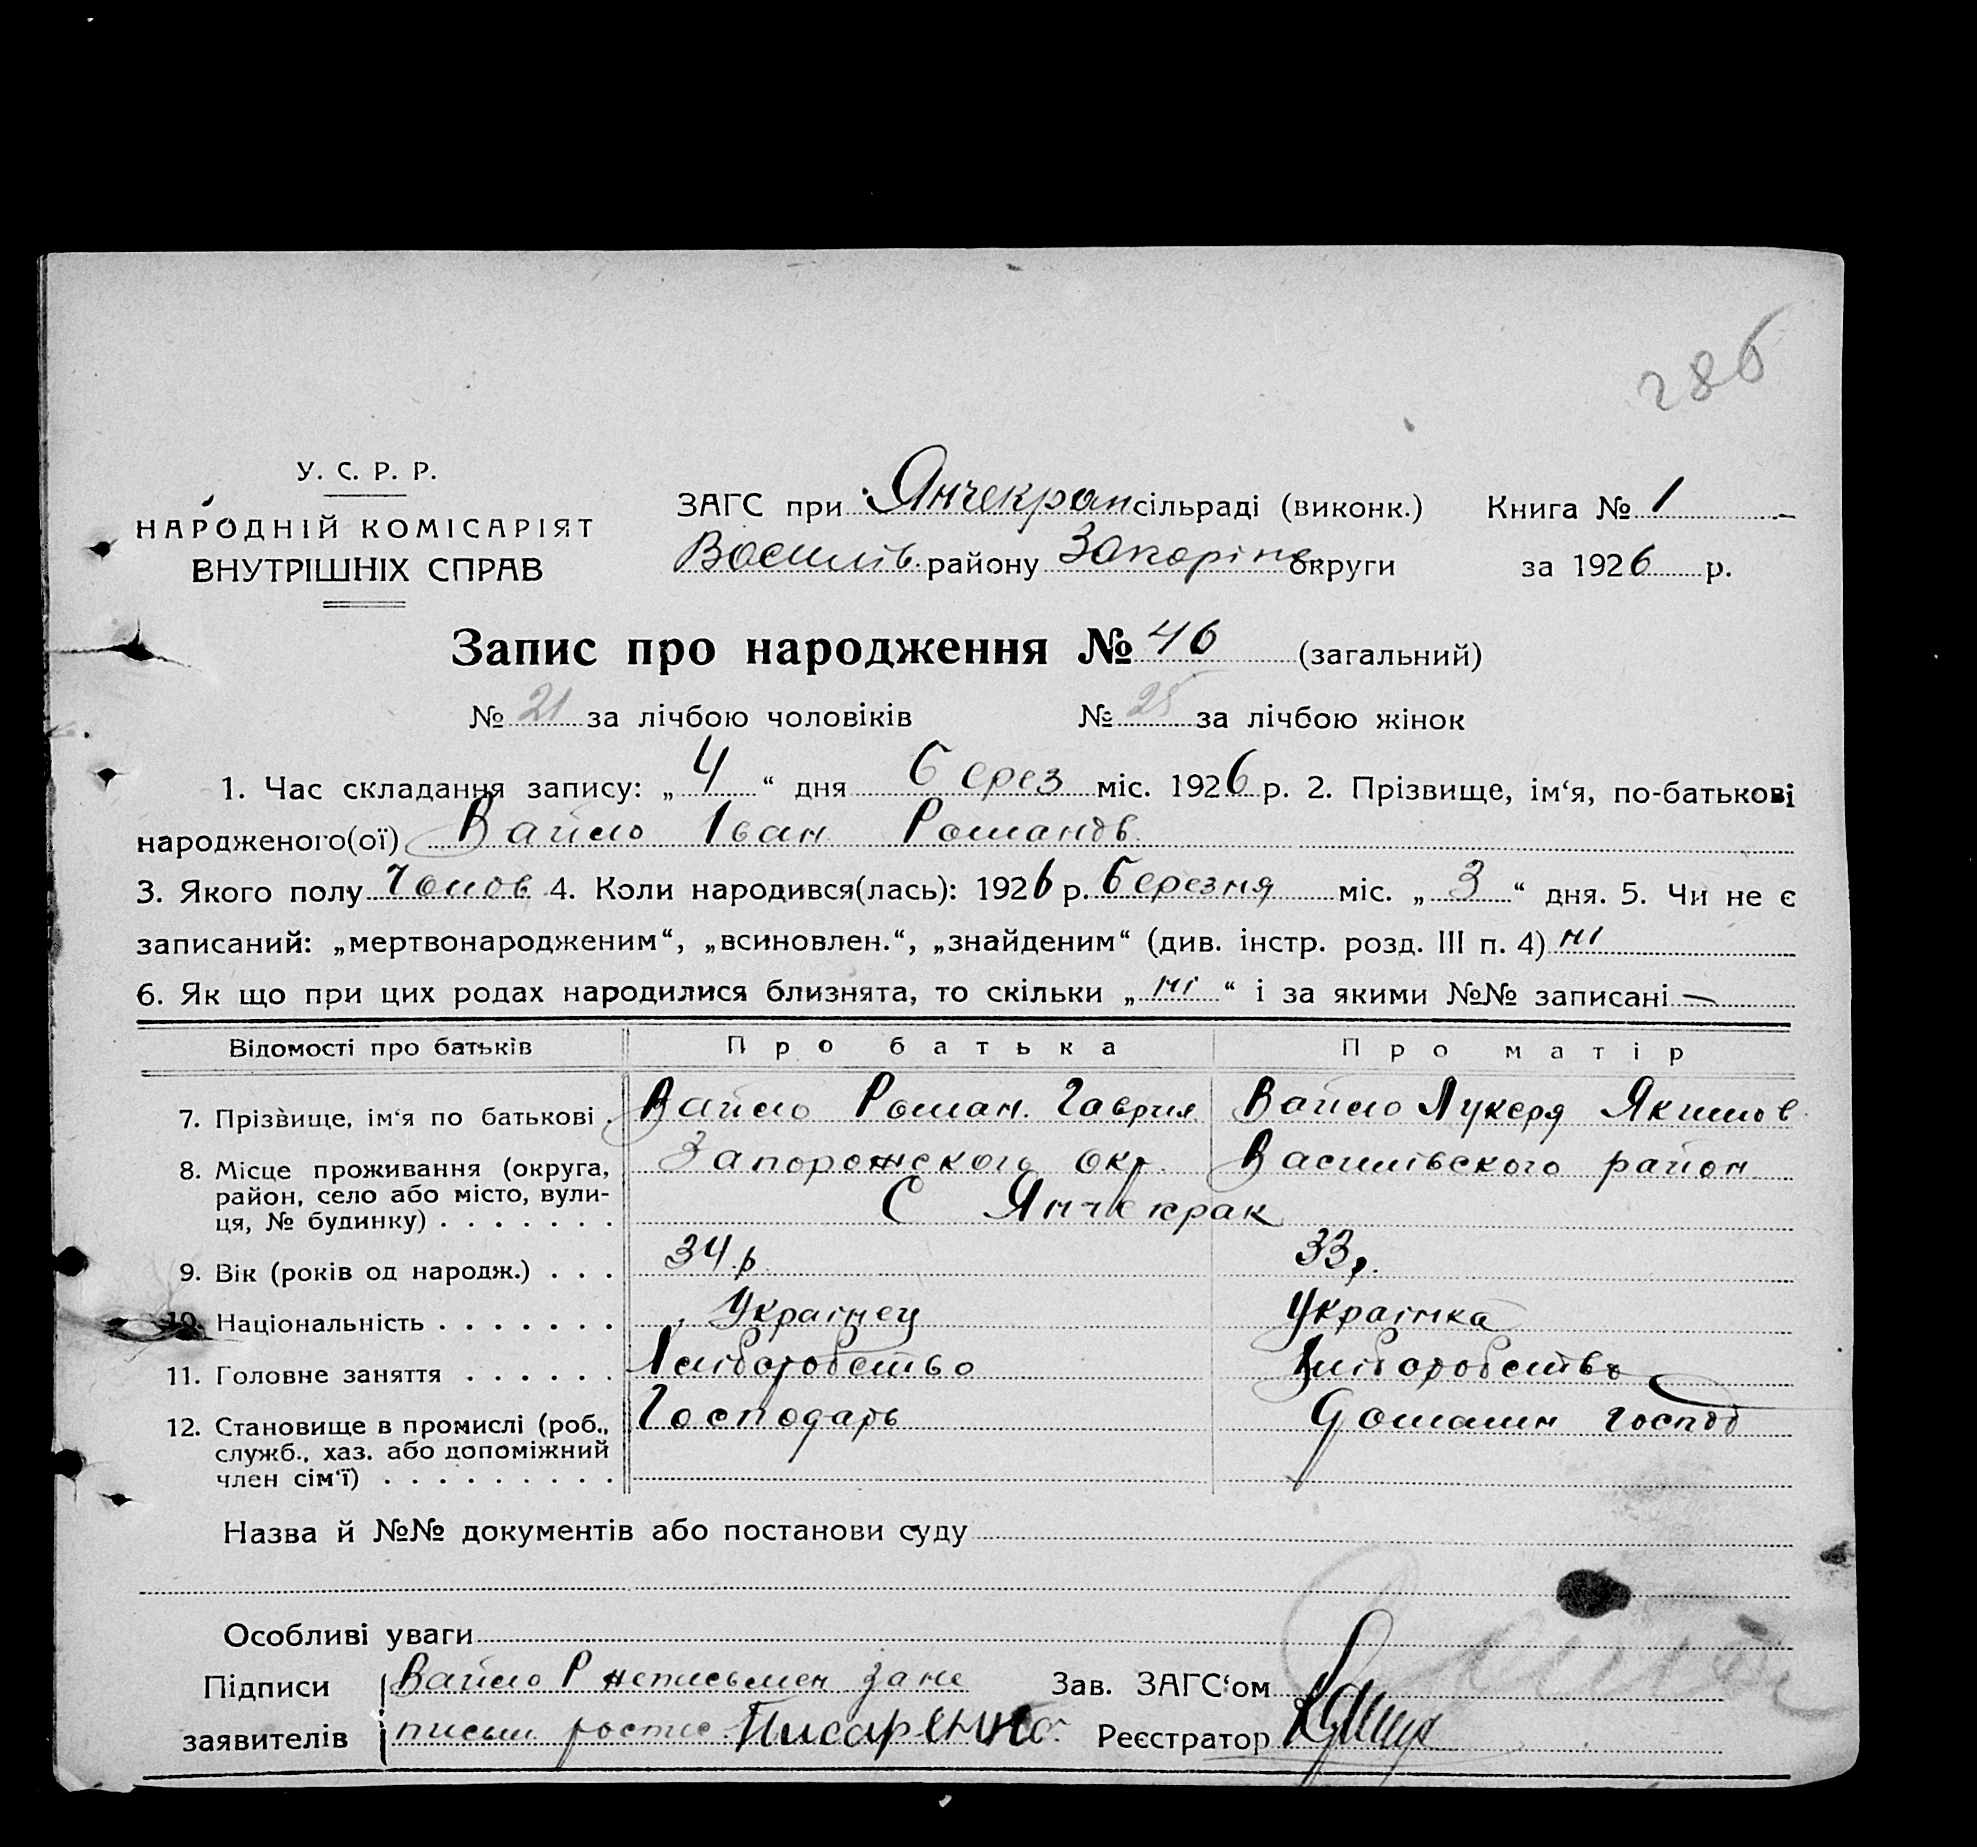 286
У. С. Р. Р.
НАРОДНІЙ КОМІСАРІЯТ
ВНУТРІШНІХ СПРАВ
ЗАГС при Янчекрак сільраді (виконк.) Книга № 1
Василів. району Запоріж округи за 1926 р.
Запис про народження № 46 (загальний)
№ 21 за лічбою чоловіків № 25 за лічбою жінок
1. Час складання запису: „ 4 “ дня берез міс. 1926 р. 2. Прізвище, ім‘я, по-батькові
народженого(ої) Вайло Іван Романов.
3. Якого полу Чолов. 4. Коли народився(лась): 1926 р. березня міс. „ 3 “ дня. 5. Чи не є
записаний: „мертвонародженим“, „всиновлен.“, „знайденим“ (див. інстр. розд. III п. 4) ні
6. Як що при цих родах народилися близнята, то скільки „ ні “ і за якими №№ записані —
Відомості про батьків Про батька Про матір
7. Прізвище, ім‘я по батькові . Вайло Роман. Гаврил Вайло Лукеря Якимов
8. Місце проживання (округа, Запорожского окр. Василівского район
район, село або місто, вули-
ця, № будинку) . . . . . . . С Янчекрак
9. Вік (років од народж.) . . . 34 р. 33 р.
10. Національність . . . . . . . Українец Українка
11. Головне заняття . . . . . . Хліборобство Хліборобство
12. Становище в промислі (роб., Господарь Домашн господ
служб., хаз. або допоміжний
член сім‘ї) . . . . . . . . .
Назва й №№ документів або постанови суду
Особливі уваги
Підписи Вайло Р неписьмен за не Зав. ЗАГС‘ом
заявителів письм. роспис Писаренко Реєстратор